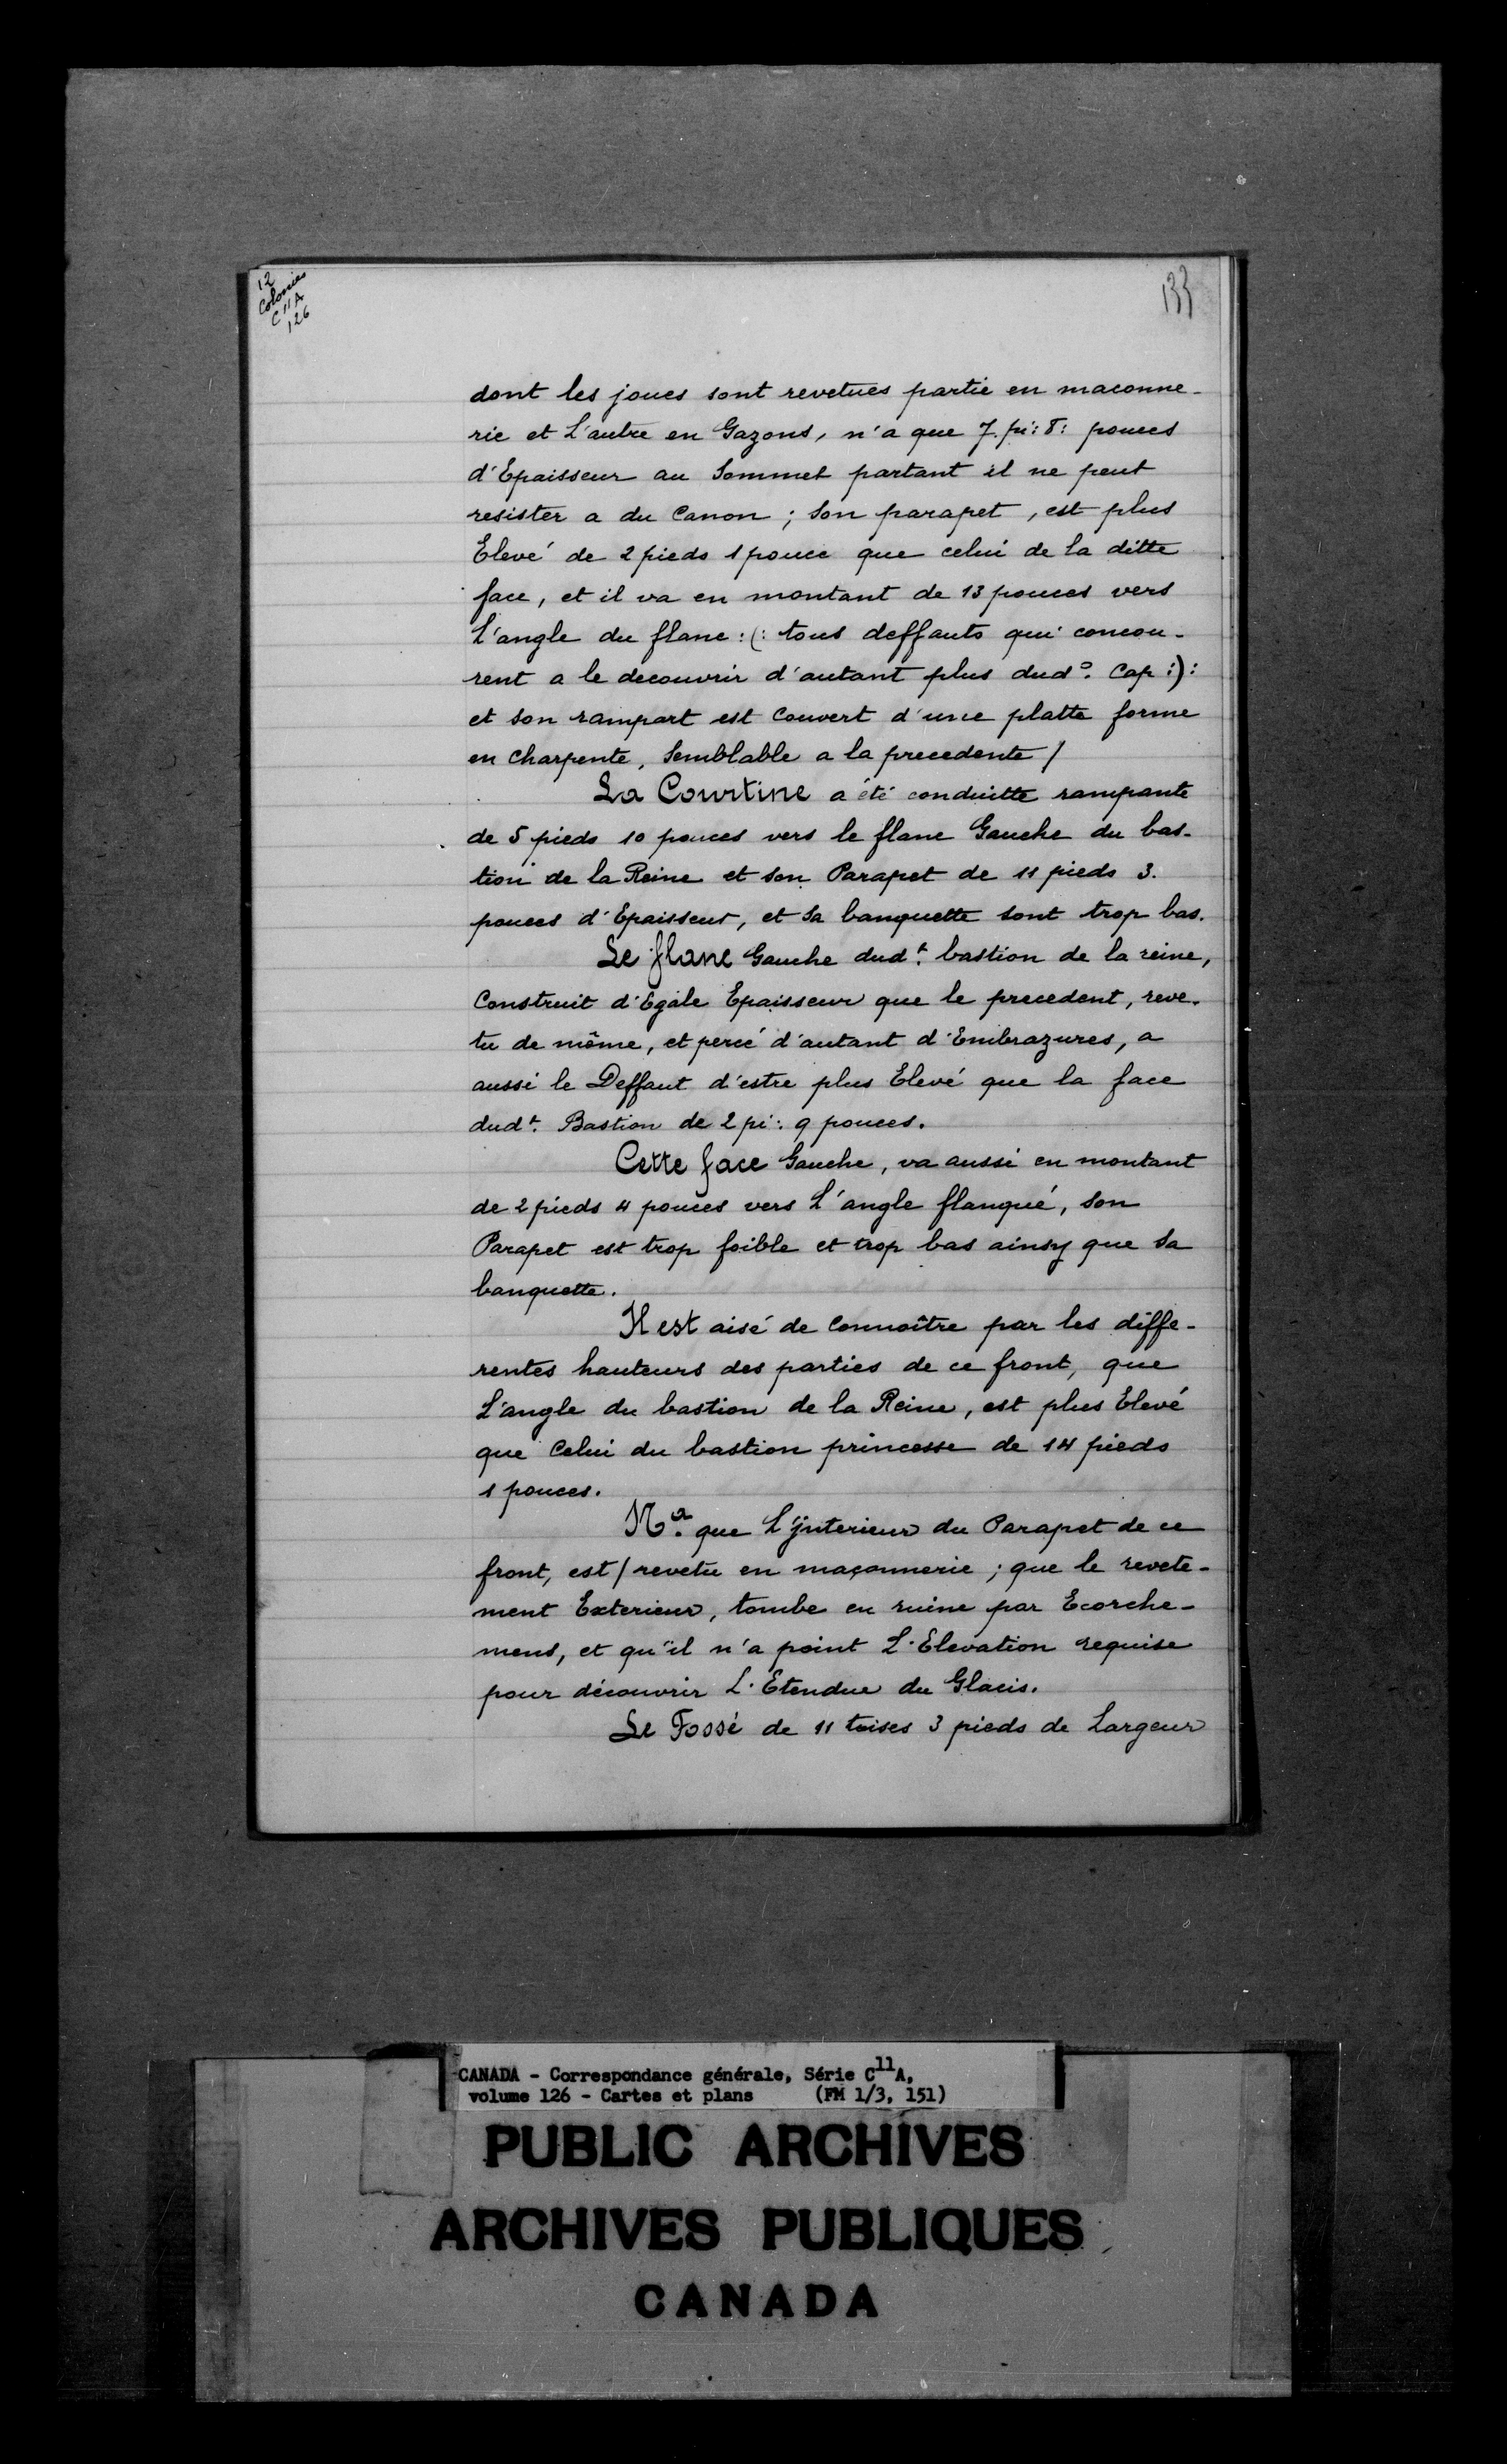 12
Colonies
C 11 A
126
133
dont les joues sont revetues partie en maconne-
rie et L'autre en Gazons, n'a que 7. pi: 8: pouces
d'Epaisseur au Sommet partant il ne peut
resister a du Canon ; Son parapet, est plus
Elevé de 2 pieds 1 pouce que celui de la ditte
face, et il va en montant de 13 pouces vers
L'angle du flanc :(: tous deffauts qui concou-
rent a le decouvrir d'autant plus dud°. Cap :):
et son rampart est Couvert d'une platte forme
en Charpente, Semblable a la precedente /
La Courtine a été conduitte rampante
de 5 pieds 10 pouces vers le flanc Gauche du bas-
tion de la Reine et son Parapet de 11 pieds 3.
pouces d'Epaisseur, et Sa banquette sont trop bas.
Le flanc Gauche dudt. bastion de la reine,
Construit d'Egale Epaisseur que le precedent, reve-
tu de même, et percé d'autant d'Embrazures, a
aussi le Deffaut d'estre plus Elevé que la face
dudt. Bastion de 2 pi: 9 pouces.
Cette face Gauche, va aussi en montant
de 2 pieds 4 pouces vers L'angle flanqué, son
Parapet est trop foible et trop bas ainsy que Sa
banquette.
Il est aisé de Connoître par les diffe-
rentes hauteurs des parties de ce front, que
L'angle du bastion de la Reine, est plus Elevé
que Celui du bastion princesse de 14 pieds
1 pouces.
Na. que L'jnterieur du Parapet de ce
front, est / revetu en maçonnerie ; que le revete-
ment Exterieur, tombe en ruine par Ecorche-
mens, et qu'il n'a point L'Elevation requise
pour découvrir L'Etendue du Glacis.
Le Fossé de 11 toises 3 pieds de Largeur
CANADA - Correspondance générale, Série C11A,
volume 126 - Cartes et plans (FM 1/3, 151)
PUBLIC ARCHIVES
ARCHIVES PUBLIQUES
CANADA